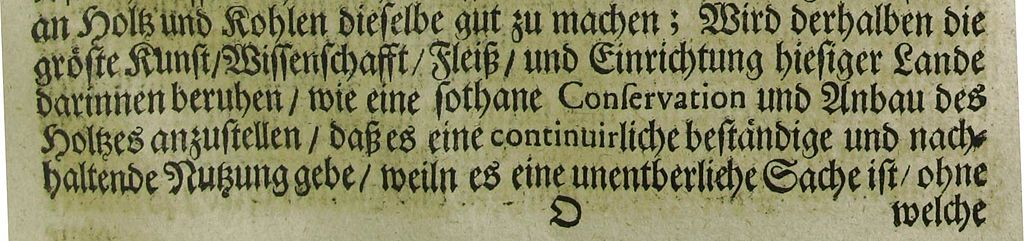 an Holtz und Kohlen dieſelbe gut zu machen; Wird derhalben die
gröſte Kunſt/Wiſſenſchafft/Fleiß/ und Einrichtung hieſiger Lande
darinnen beruhen / wie eine ſothane Conſervation und Anbau des
Holtzes anzuſtellen / daß es eine continuirliche beſtändige und nach⸗
haltende Nutzung gebe / weiln es eine unentberliche Sache iſt / ohne
O welche